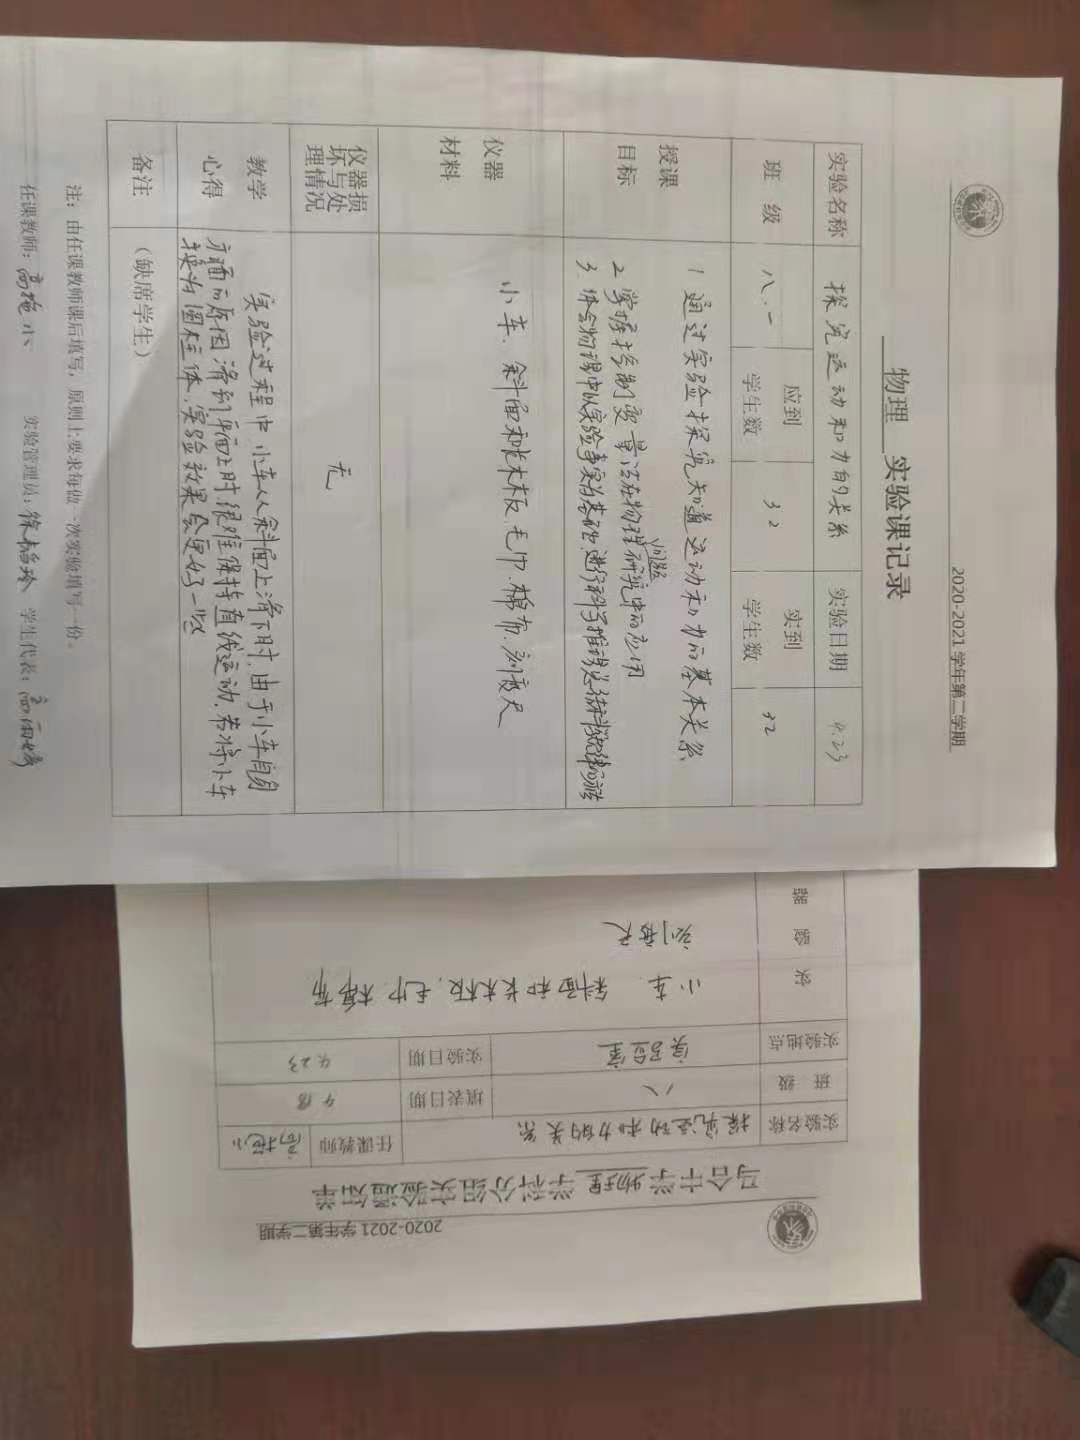 2020-2021学年第二学期
物理 实验课记录
实验名称 探究运动和力的关系 实验日期 4.23
班级 八.一 应到学生数 32 实到学生数 32
授课目标
1 通过实验探究知道运动和力的基本关系
2 掌握控制变量法在物理问题研究中的应用
3. 体会物理课中以实验事实为基础,进行科学推理总结科学规律的方法
仪器材料 小车、斜面和长木板、毛巾、棉布、刻度尺
仪器损坏与处理情况 无
教学心得
实验过程中,小车从斜面上滑下时,由于小车自身
方面的原因滑到平面上时很难保持直线运动.若将小车
换为圆柱体,实验效果会更好一些
备注 (缺席学生)
注:由任课教师课后填写,原则上要求每做一次实验填写一份。
任课教师: 实验管理员: 学生代表:
2020-2021学年第二学期
学科分组实验通知单
物理
实验名称 探究运动和力的关系 任课教师
班级 八 填表日期
实验地点 实验室 实验日期 4.23
实验器
小车、斜面和长木板、毛巾、棉布
刻度尺